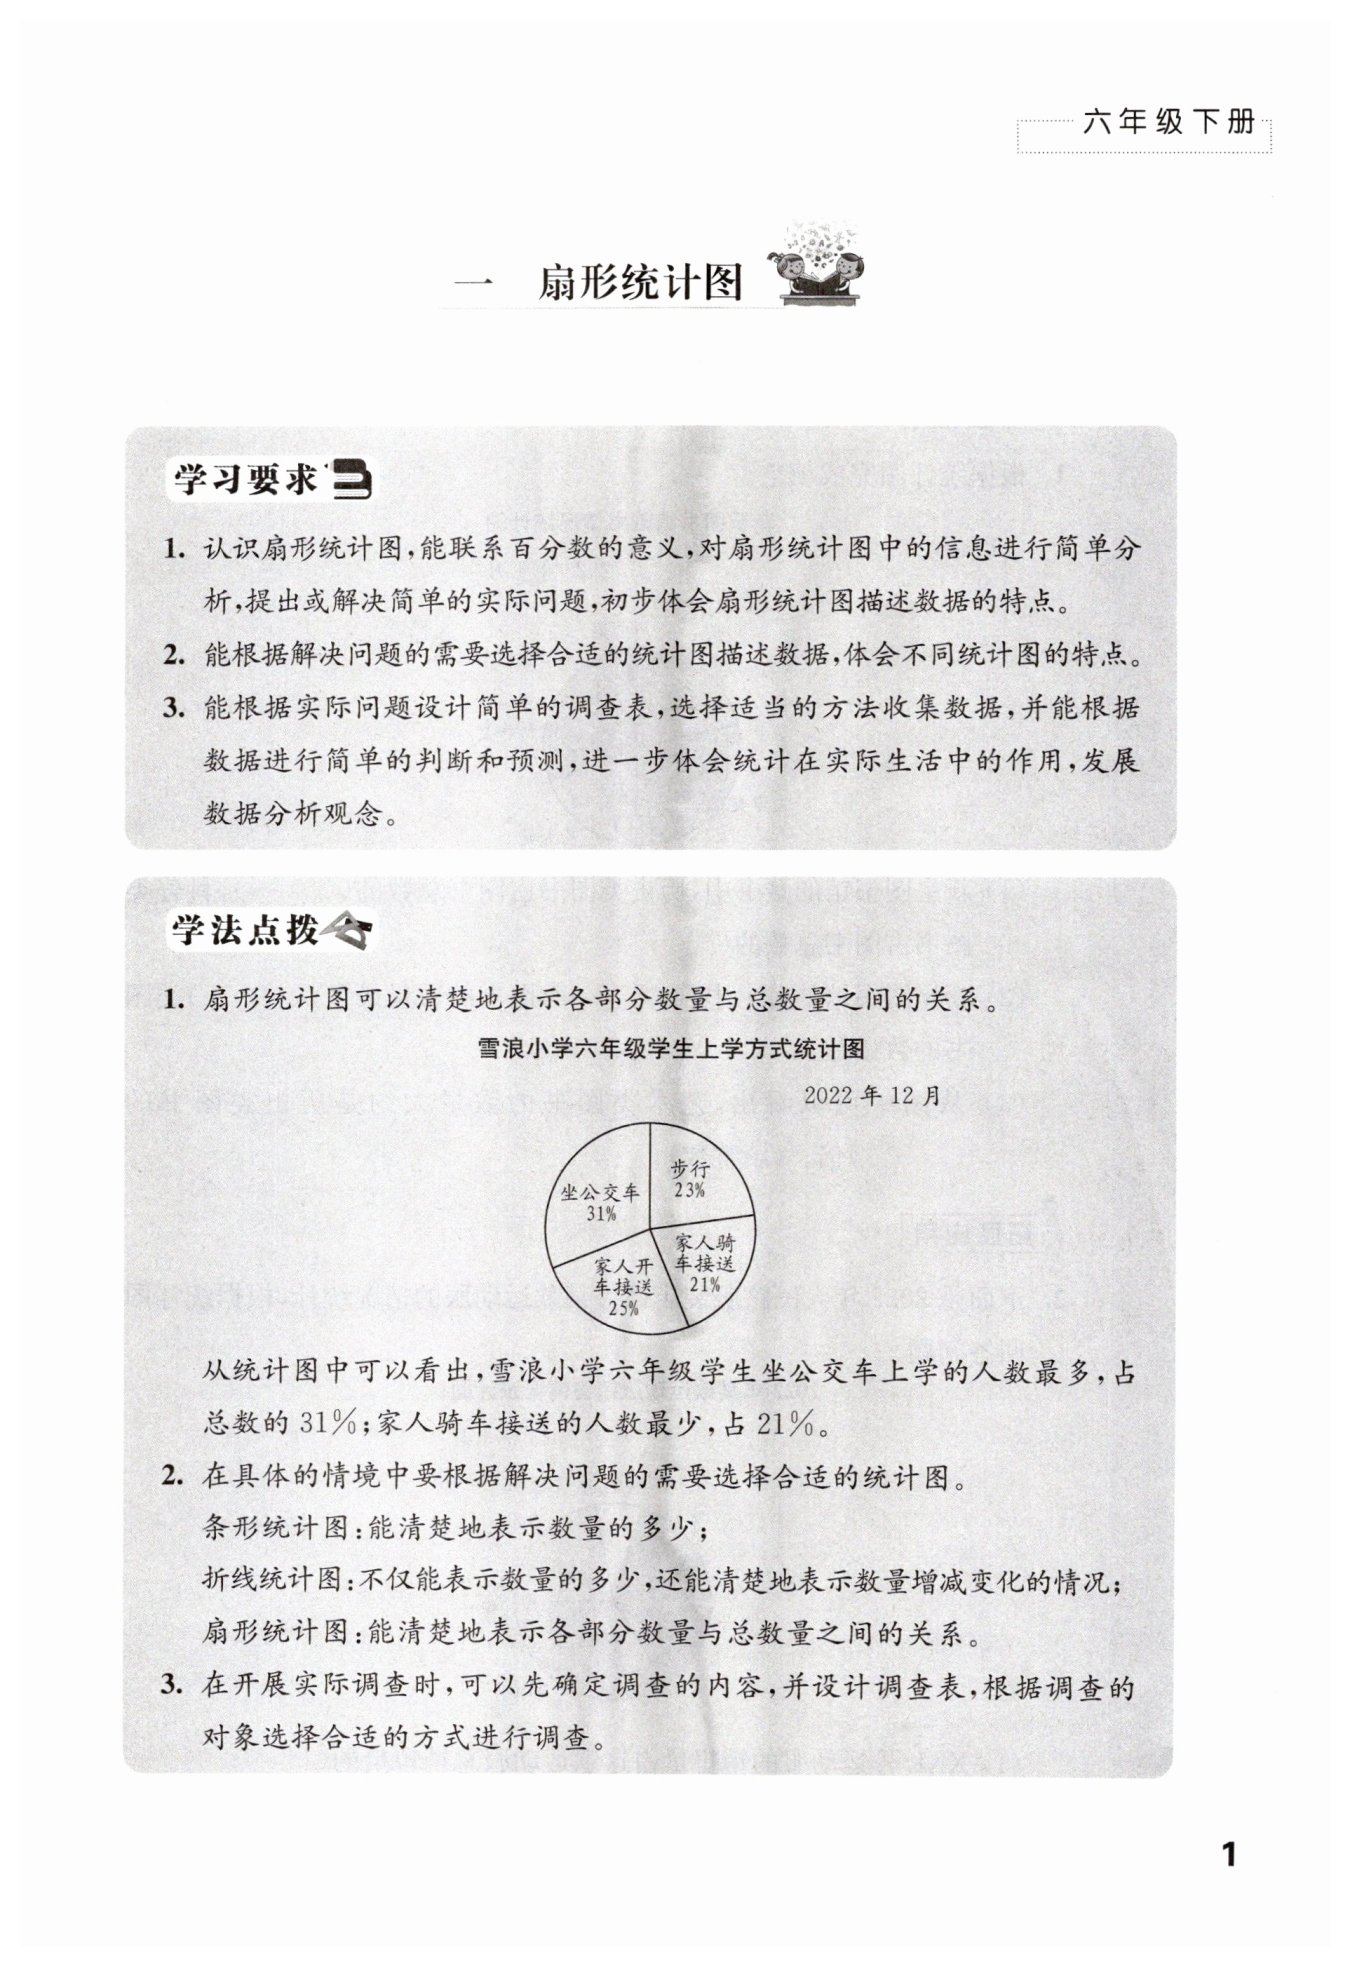 六年级下册
一 扇形统计图
学习要求
1. 认识扇形统计图,能联系百分数的意义,对扇形统计图中的信息进行简单分
析,提出或解决简单的实际问题,初步体会扇形统计图描述数据的特点。
2. 能根据解决问题的需要选择合适的统计图描述数据,体会不同统计图的特点。
3. 能根据实际问题设计简单的调查表,选择适当的方法收集数据,并能根据
数据进行简单的判断和预测,进一步体会统计在实际生活中的作用,发展
数据分析观念。
学法点拨
1. 扇形统计图可以清楚地表示各部分数量与总数量之间的关系。
雪浪小学六年级学生上学方式统计图
2022 年 12 月
步行
23%
坐公交车
31%
家人骑
车接送
21%
家人开
车接送
25%
从统计图中可以看出,雪浪小学六年级学生坐公交车上学的人数最多,占
总数的 31%;家人骑车接送的人数最少,占 21%。
2. 在具体的情境中要根据解决问题的需要选择合适的统计图。
条形统计图:能清楚地表示数量的多少;
折线统计图:不仅能表示数量的多少,还能清楚地表示数量增减变化的情况;
扇形统计图:能清楚地表示各部分数量与总数量之间的关系。
3. 在开展实际调查时,可以先确定调查的内容,并设计调查表,根据调查的
对象选择合适的方式进行调查。
1